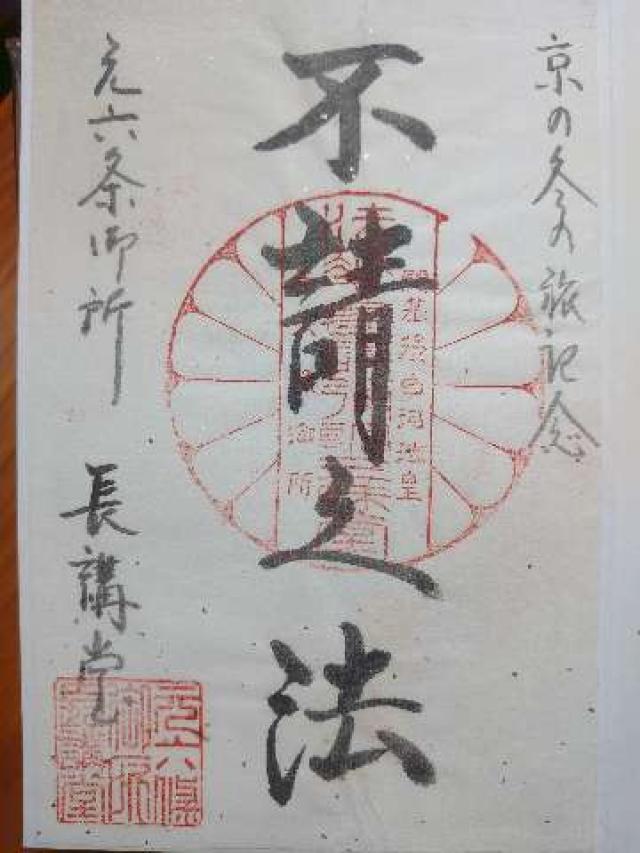 京の冬の旅記念
不請之法
開基後白河法皇
元六条御所 長講堂
元六條
御所
長講堂